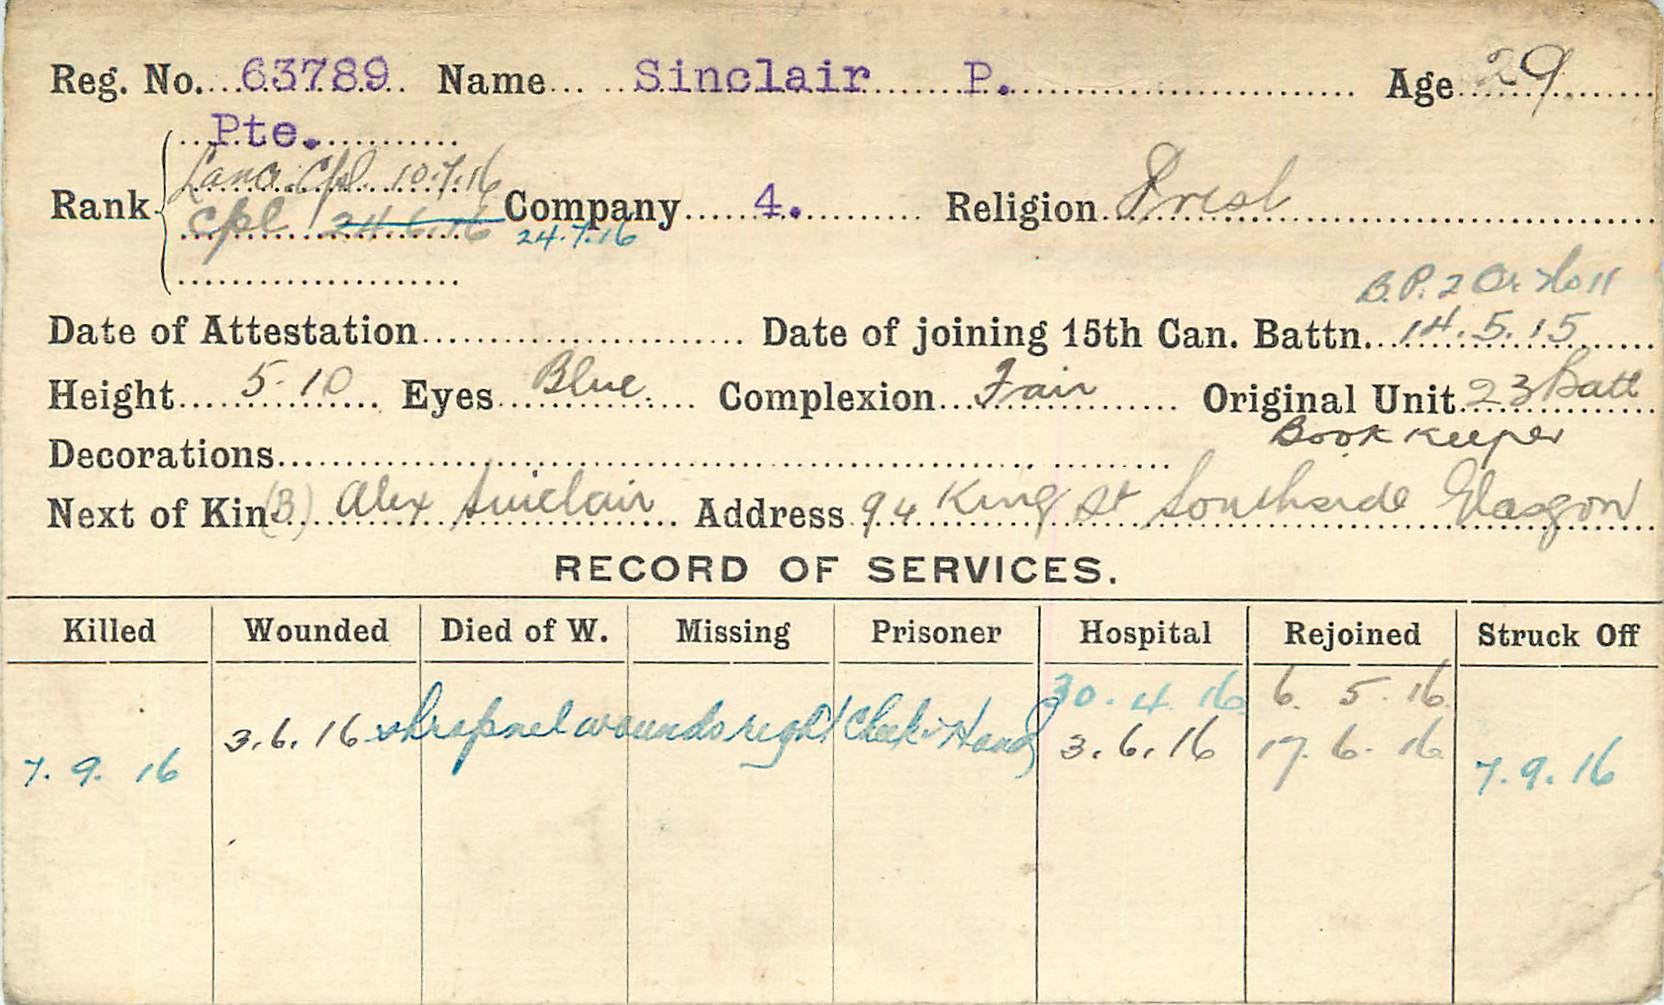 Reg. No. 63789 Name Sinclair P. Age 29
Pte.
Lanc. Cpl 10.7.16
Rank Cpl 24.6.16 Company 4. Religion Presb
24.7.16
B.P. 2 Or
Date of Attestation Date of joining 15th Can. Battn. 14.5.15
Height 5-10 Eyes Blue. Complexion Fair Original Unit 23 Batt
Book Keeper
Decorations
Next of Kin (B) Alex Sinclair Address 94 King St Southside Glasgow
RECORD OF SERVICES.
Killed Wounded Died of W. Missing Prisoner Hospital Rejoined Struck Off
30.4.16 6.5.16
3.6.16 shrapnel wounds right Cheek & Hand 3.6.16 17.6.16
7.9.16 7.9.16